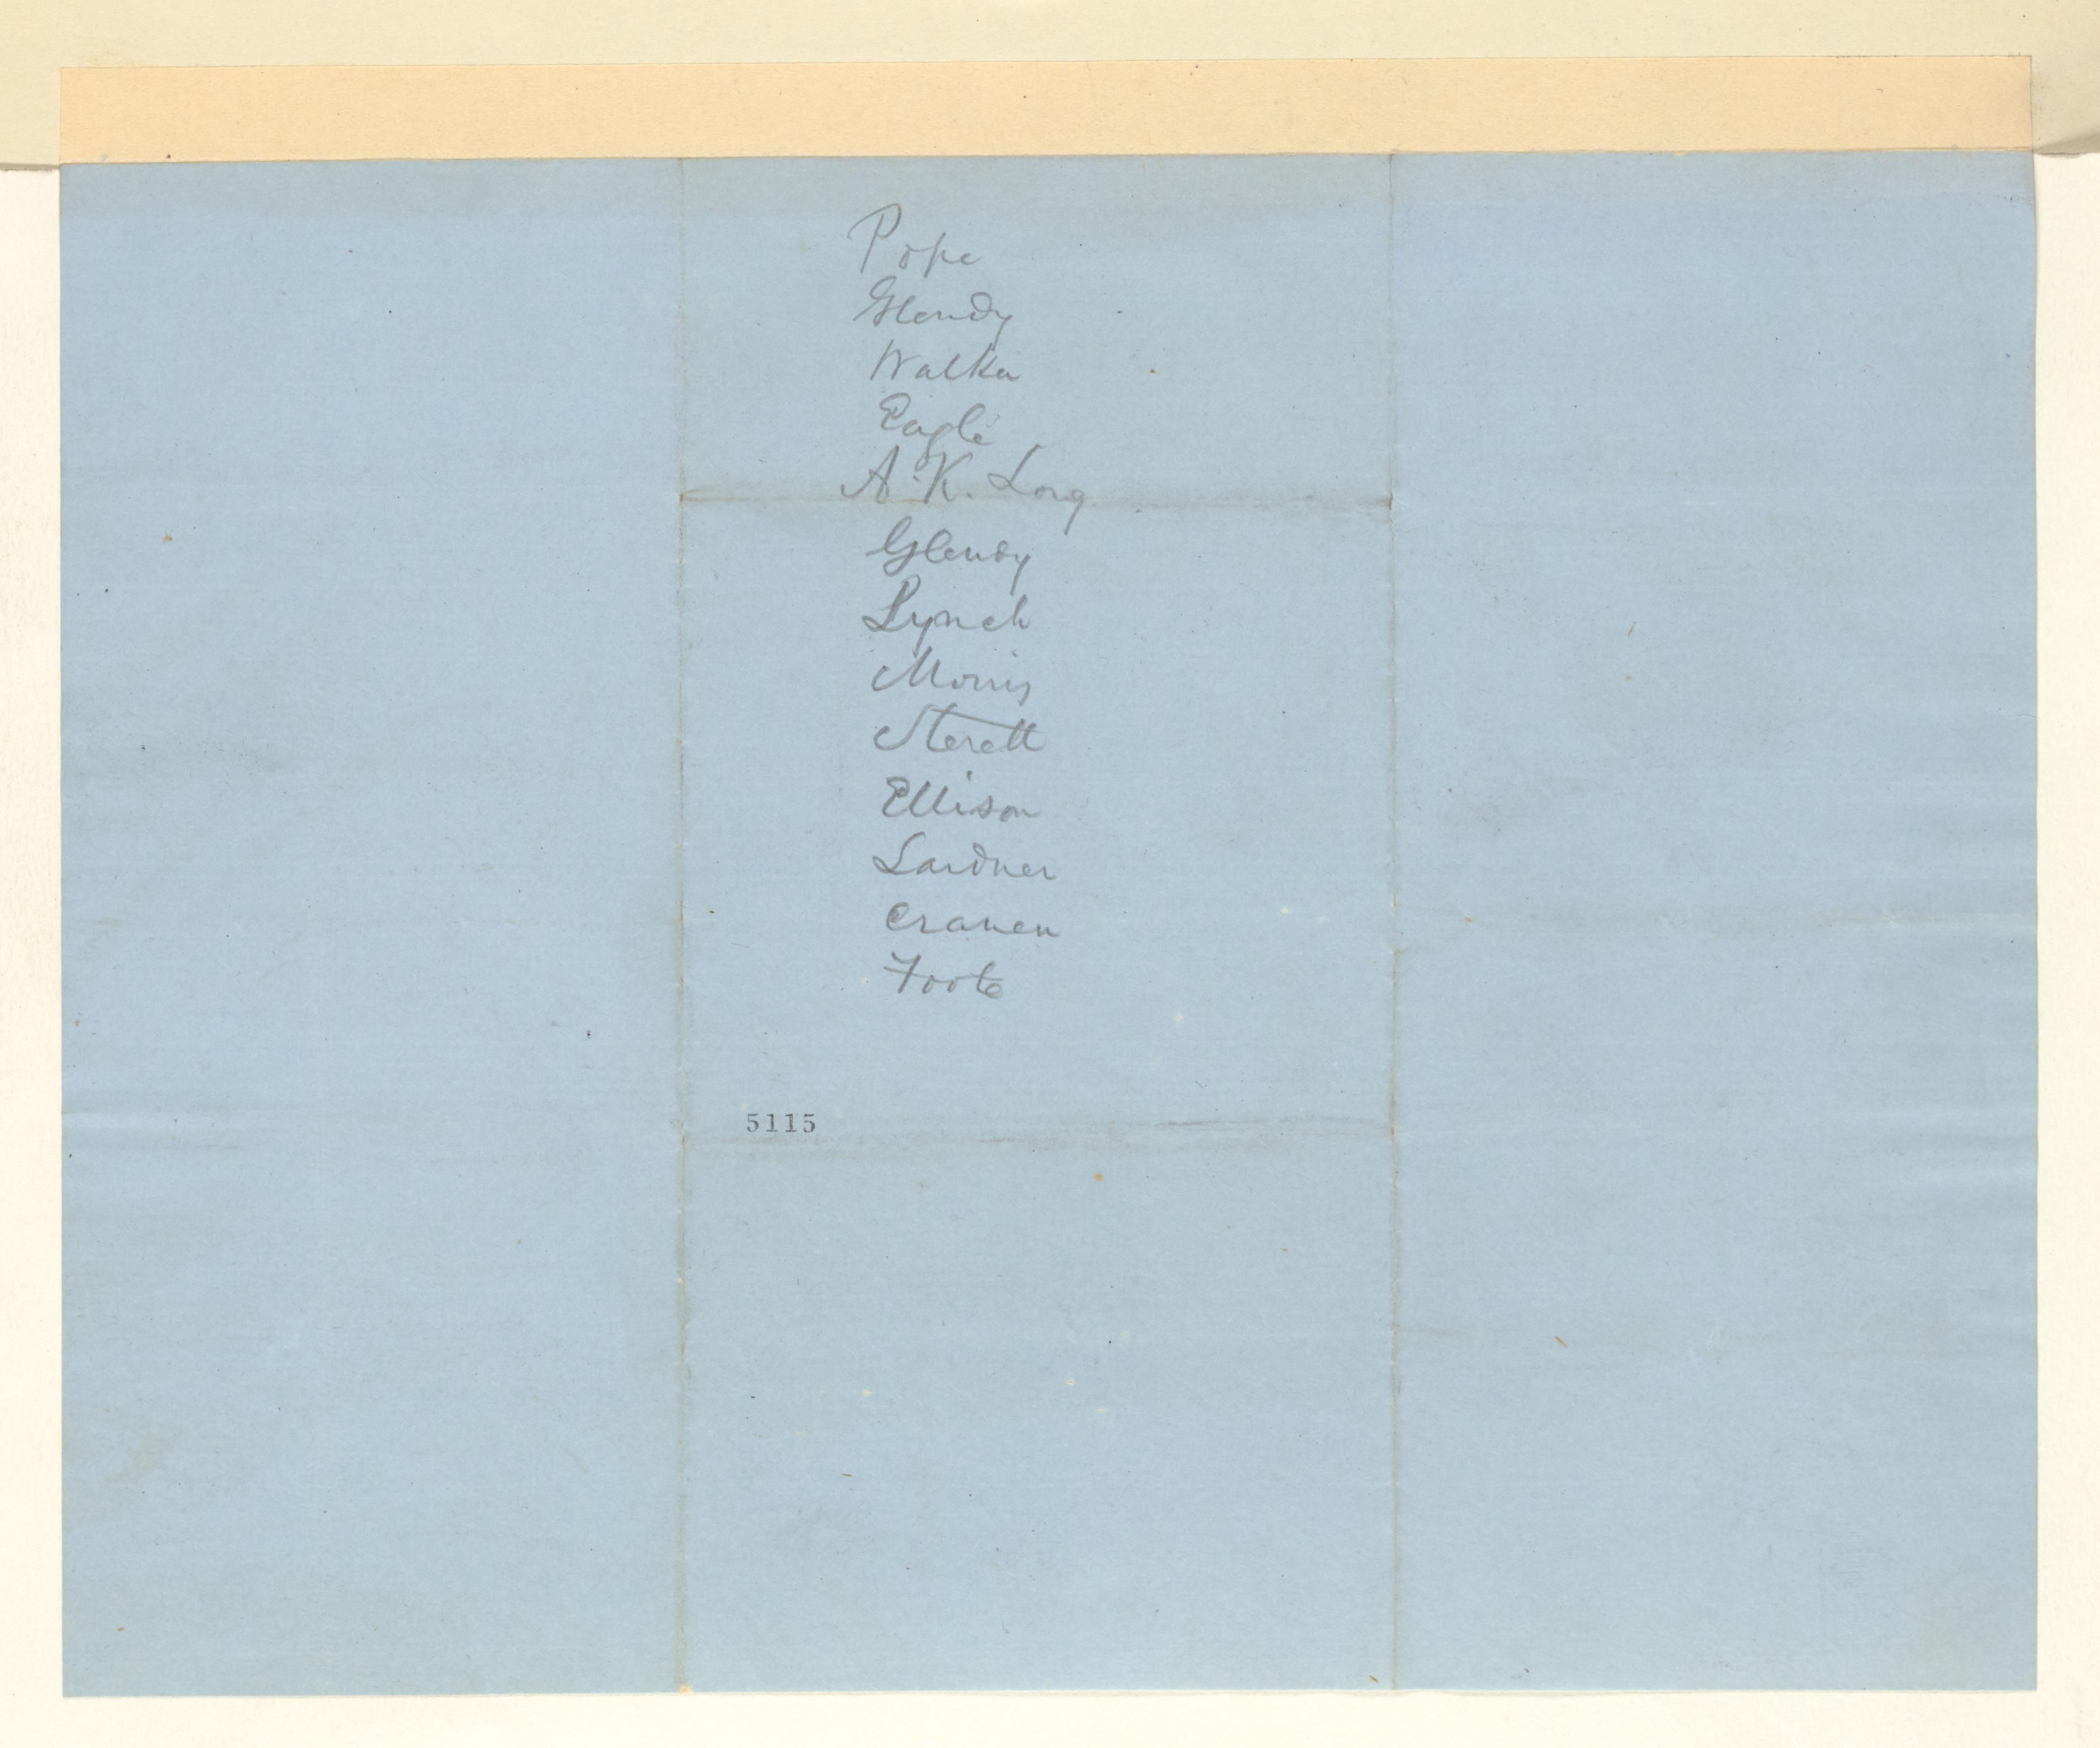 Pope
Glendy
Walker
Eagle
A. K. Long
Glendy
Lynch
Morris
Sterett
Ellison
Lardner
Craven
Foote
5115